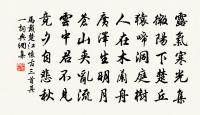 露氣寒光集
微陽下楚丘
猿啼洞庭樹
人在木蘭舟
廣澤生明月
蒼山夾亂流
雲中君不見
竟夕自悲秋
馬戴楚江懷古三首其
一詞典網集